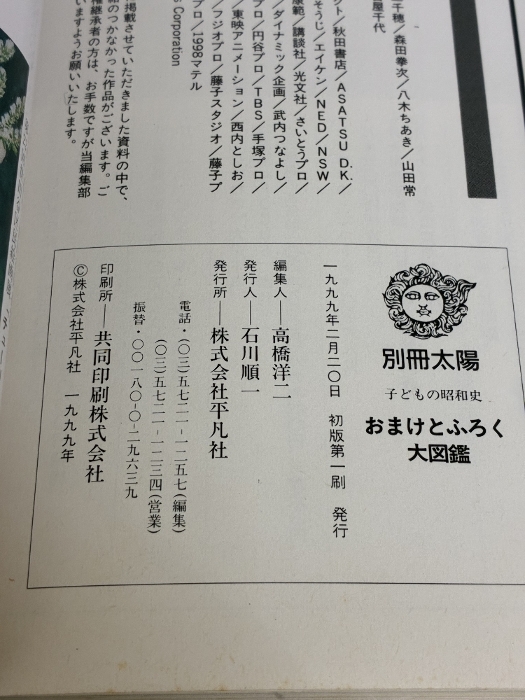 千穂／森田拳次／八木ちあき／山田常
屋千代
クト／秋田書店／ＡＳＡＴＳＵ Ｄ．Ｋ．／
そうじ／エイケン／ＮＥＤ／ＮＳＷ／
康範／講談社／光文社／さいとうプロ／
／ダイナミック企画／武内つなよし／
プロ／円谷プロ／ＴＢＳ／手塚プロ／
／東映アニメーション／西内としお／
／フジオプロ／藤子スタジオ／藤子プ
プロ／1998マテル
s Corporation
掲載させていただきました資料の中で、
のつかなかった作品がございます。ご
権継承者の方は、お手数ですが当編集部
いますようお願いいたします。
別冊太陽
子どもの昭和史
おまけとふろく
大図鑑
一九九九年二月二〇日　初版第一刷　発行
編集人――高橋洋二
発行人――石川順一
発行所――株式会社平凡社
電話・（〇三）五七二一-一二五七（編集）
（〇三）五七二一-一二三四（営業）
振替・〇〇一八〇-〇-二九六三九
印刷所――共同印刷株式会社
©株式会社平凡社　一九九九年